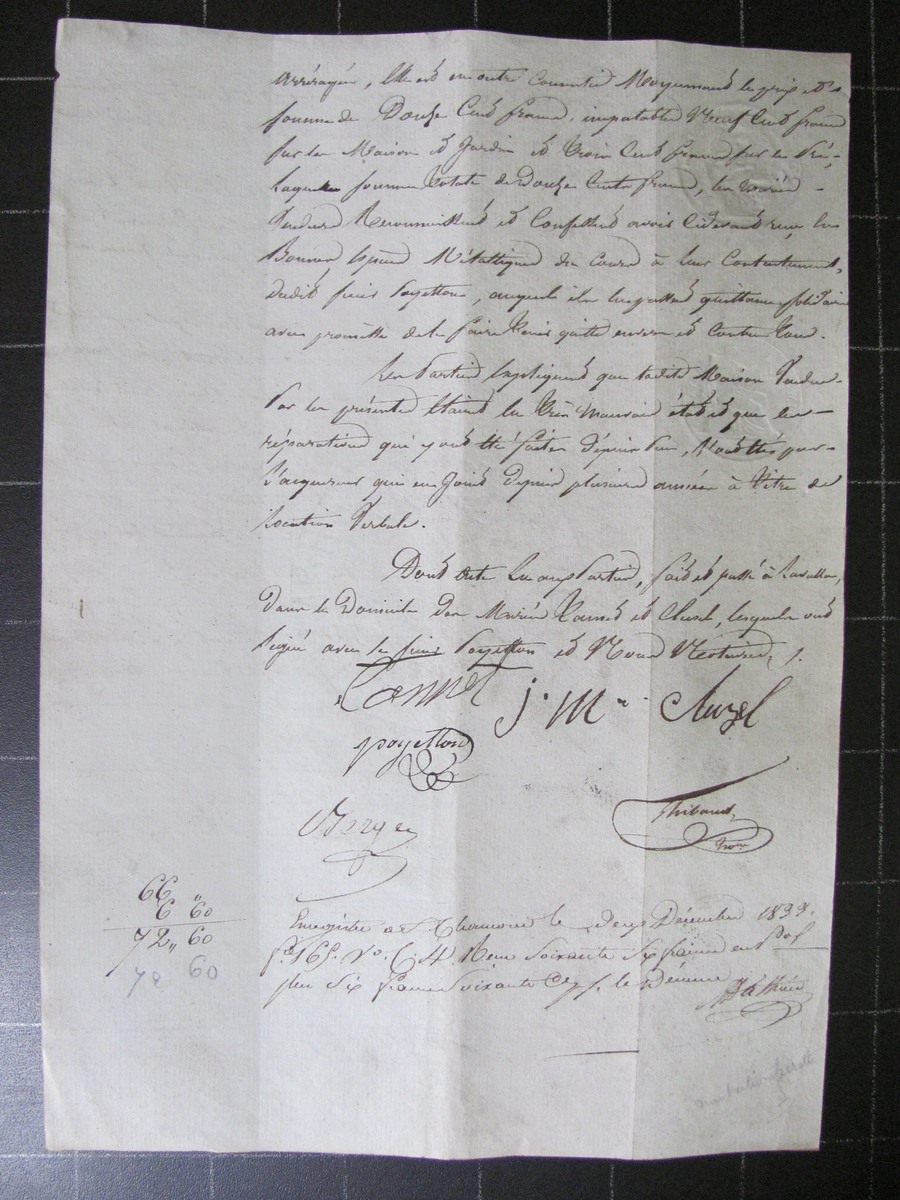 arrérages, Elle est en outre consentie Moyennant le prix et
somme de Douze Cent francs, imputables Neuf Cent francs
sur la Maison et Jardin et Trois Cent francs sur le
laquelle somme totale de Douze Cents francs, les mariés
Vendeurs Reconnaissent et Confessent avoir ci devant reçu, en
Bonnes Espèces Métalliques de Cours à leur Contentement,
dudit sieur Poyetton, auquel ils en passent quittance solidaire
avec promesse de le faire Tenir quitte envers et Contre Tous.
Les Parties Expliquent que ladite Maison Vendue
Par les présentes Etaient en Très Mauvais état et que les
réparations qui y ont été faites depuis peu, l'ont été par
l'acquéreur qui en Jouit Depuis plusieurs années à Titre de
Location Verbale.
Dont acte Lu aux Parties, fait et passé à Lavalla,
Dans le Domicile Des Mariés et Chuzel, lesquels ont
signé avec le sieur Poyetton et Nous Notaires /.
J. M. Chuzel
poyetton
Berge
Thibaud
66 "
6 60
72 " 60
72 60
Enregistré à St. Chamond le deux Décembre 1839.
fo. 165 Vo. C. 4. Reçu Soixante Six francs
plus Six francs Soixante Cmes p. le Décime